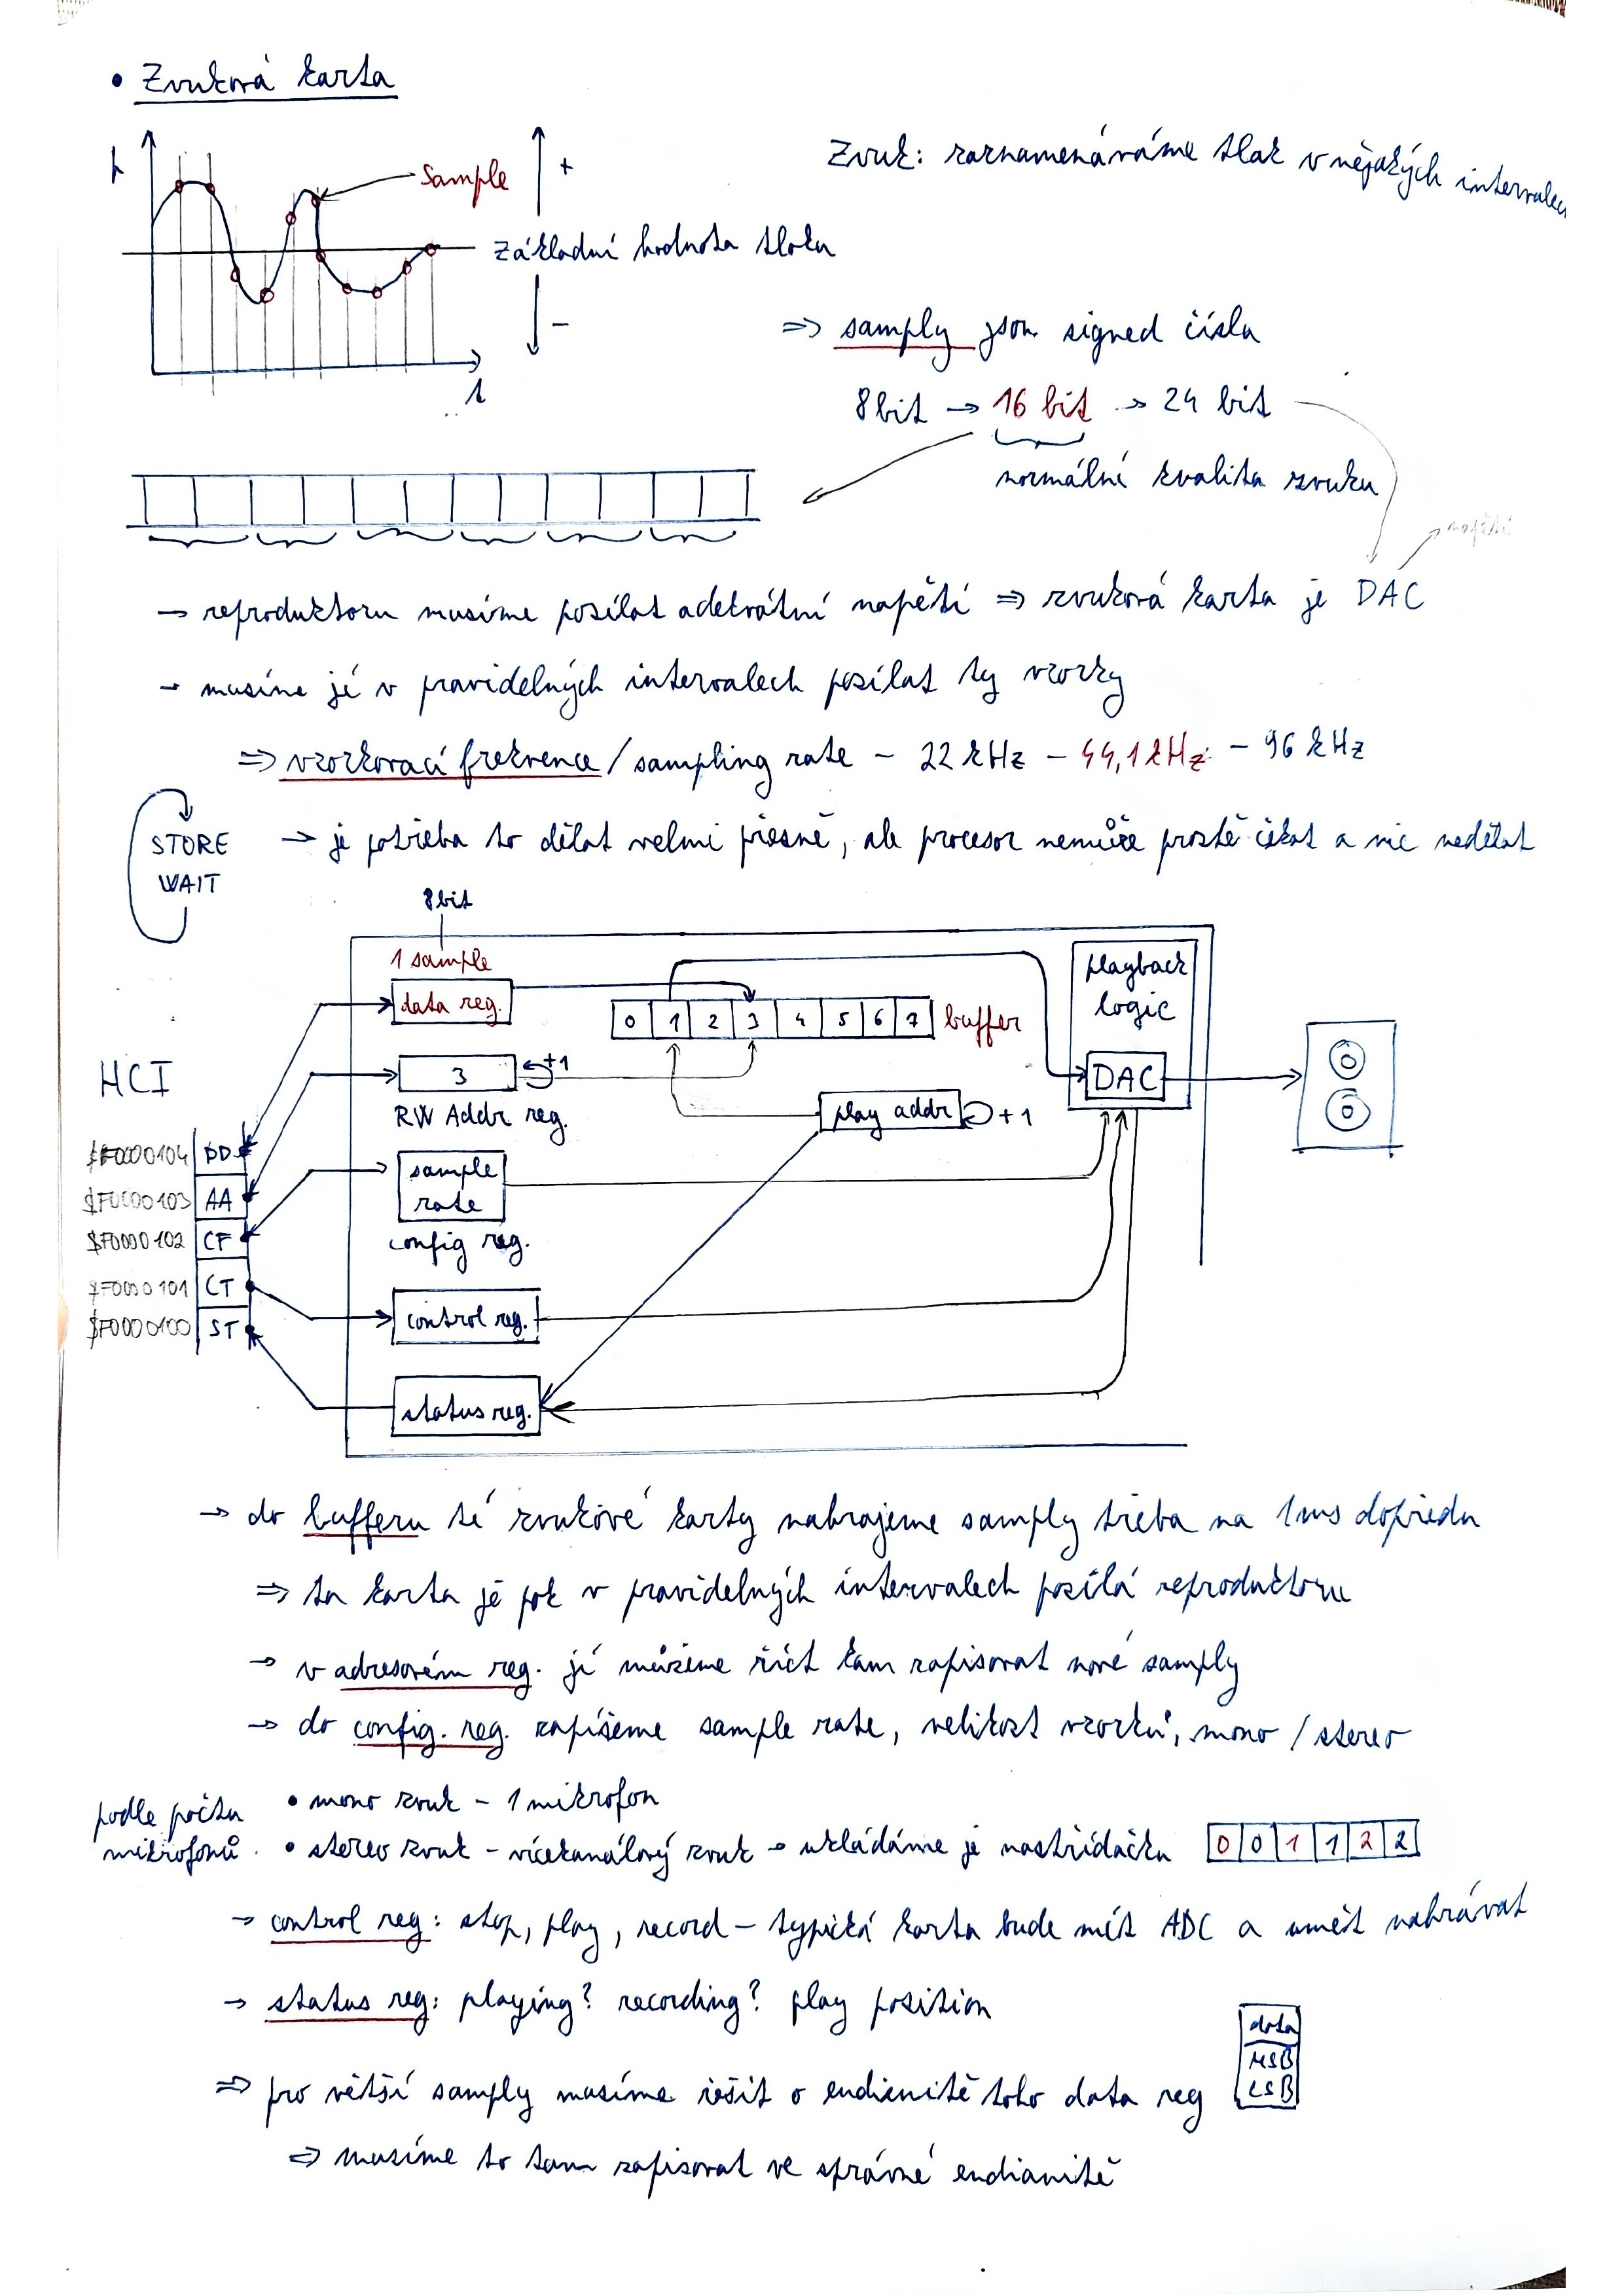 • Zvuková karta
Zvuk: zaznamenáváme tlak v nějakých intervalech
Sample
+
základní hodnota tlaku
−
t
⇒ samply jsou signed čísla
8 bit → 16 bit → 24 bit
normální kvalita zvuku
→ reproduktoru musíme posílat adekvátní napětí ⇒ zvuková karta je DAC
→ musíme jí v pravidelných intervalech posílat ty vzorky
⇒ vzorkovací frekvence / sampling rate – 22 kHz – 44,1 kHz – 96 kHz
STORE
WAIT
→ je potřeba to dělat velmi přesně, ale procesor nemůže prostě čekat a nic nedělat
8bit
1 sample
data reg.
0 1 2 3 4 5 6 7 buffer
playback
logic
HCI
3 +1
RW Addr reg.
DAC
play addr +1
$F0000104 DD
$F0000103 AA
$F0000102 CF
$F0000101 CT
$F0000100 ST
sample
rate
config reg.
control reg.
status reg.
→ do bufferu té zvukové karty nahrajeme samply třeba na 1ms dopředu
⇒ ta karta je pak v pravidelných intervalech posílá reproduktoru
→ v adresovém reg. jí můžeme říct kam zapisovat nové samply
→ do config. reg. zapíšeme sample rate, velikost vzorků, mono / stereo
podle počtu
mikrofonů
• mono zvuk – 1 mikrofon
• stereo zvuk – vícekanálový zvuk → ukládáme je nastřídačku 0 0 1 1 2 2
→ control reg: stop, play, record – typická karta bude mít ADC a umět nahrávat
→ status reg: playing? recording? play position
⇒ pro větší samply musíme řešit o endianitě toho data reg
data
MSB
LSB
⇒ musíme to tam zapisovat ve správné endianitě